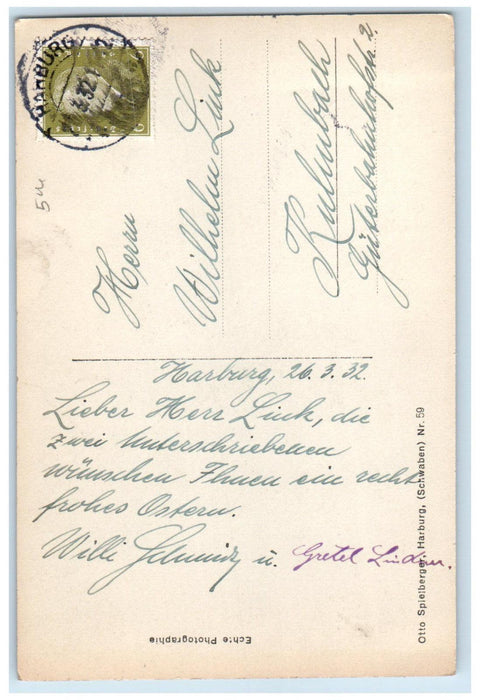 HARBURG
Herrn
Wilhelm Link
Kulmbach
Güterbahnhofstr. 2
5m
Harburg, 26.3.32.
Lieber Herr Link, die
zwei Unterschriebenen
wünschen Ihnen ein recht
frohes Ostern.
Willi Schmid u. Gretel
Echte Photographie
Otto Spielberger, Harburg, (Schwaben) Nr. 59